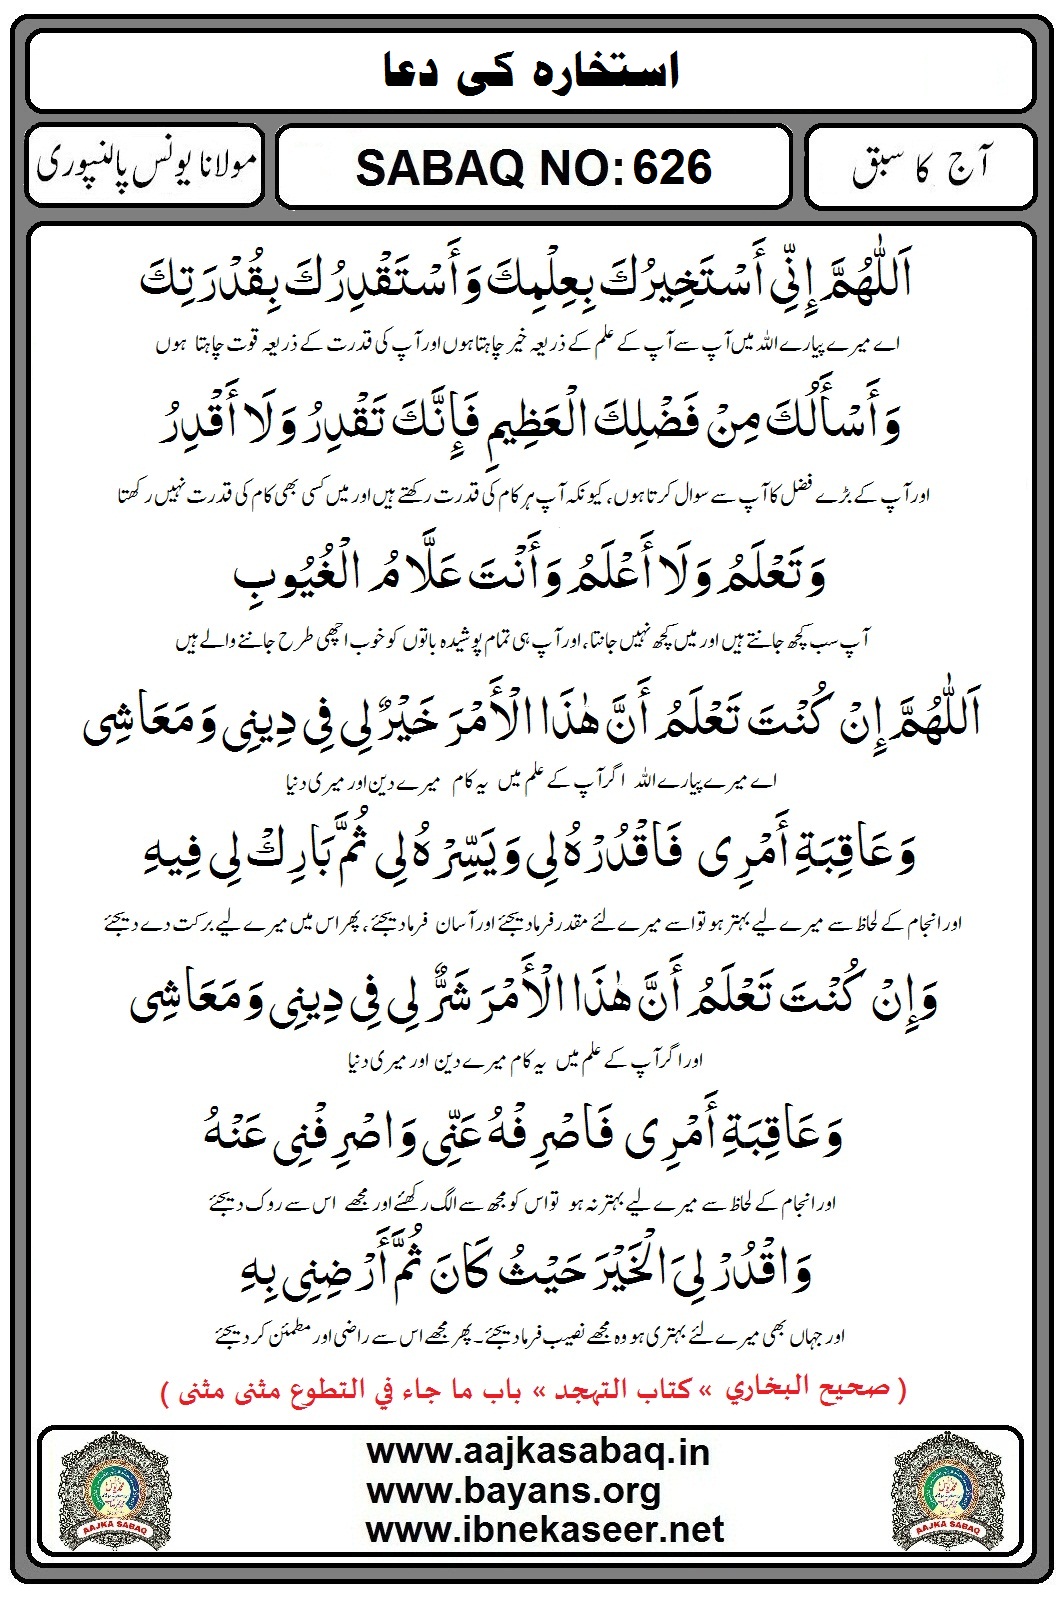 استخارہ کی دعا
آج کا سبق
SABAQ NO: 626
مولانا یونس پالنپوری
اَللّٰهُمَّ إِنِّي أَسْتَخِيرُكَ بِعِلْمِكَ وَأَسْتَقْدِرُكَ بِقُدْرَتِكَ
اے میرے پیارے اللہ میں آپ سے آپ کے علم کے ذریعہ خیر چاہتا ہوں اور آپ کی قدرت کے ذریعہ قوت چاہتا ہوں
وَأَسْأَلُكَ مِنْ فَضْلِكَ الْعَظِيمِ فَإِنَّكَ تَقْدِرُ وَلَا أَقْدِرُ
اور آپ کے بڑے فضل کا آپ سے سوال کرتا ہوں، کیونکہ آپ ہر کام کی قدرت رکھتے ہیں اور میں کسی بھی کام کی قدرت نہیں رکھتا
وَتَعْلَمُ وَلَا أَعْلَمُ وَأَنْتَ عَلَّامُ الْغُيُوبِ
آپ سب کچھ جانتے ہیں اور میں کچھ نہیں جانتا، اور آپ ہی تمام پوشیدہ باتوں کو خوب اچھی طرح جاننے والے ہیں
اَللّٰهُمَّ إِنْ كُنْتَ تَعْلَمُ أَنَّ هٰذَا الْأَمْرَ خَيْرٌ لِي فِي دِينِي وَمَعَاشِي
اے میرے پیارے اللہ اگر آپ کے علم میں یہ کام میرے دین اور میری دنیا
وَعَاقِبَةِ أَمْرِي فَاقْدُرْهُ لِي وَيَسِّرْهُ لِي ثُمَّ بَارِكْ لِي فِيهِ
اور انجام کے لحاظ سے میرے لیے بہتر ہو تو اسے میرے لئے مقدر فرما دیجئے اور آسان فرما دیجئے، پھر اس میں میرے لیے برکت دے دیجئے
وَإِنْ كُنْتَ تَعْلَمُ أَنَّ هٰذَا الْأَمْرَ شَرٌّ لِي فِي دِينِي وَمَعَاشِي
اور اگر آپ کے علم میں یہ کام میرے دین اور میری دنیا
وَعَاقِبَةِ أَمْرِي فَاصْرِفْهُ عَنِّي وَاصْرِفْنِي عَنْهُ
اور انجام کے لحاظ سے میرے لیے بہتر نہ ہو تو اس کو مجھ سے الگ رکھئے اور مجھے اس سے روک دیجئے
وَاقْدُرْ لِيَ الْخَيْرَ حَيْثُ كَانَ ثُمَّ أَرْضِنِي بِهِ
اور جہاں بھی میرے لئے بہتری ہو وہ مجھے نصیب فرما دیجئے۔ پھر مجھے اس سے راضی اور مطمئن کر دیجئے
( صحيح البخاري » كتاب التهجد » باب ما جاء في التطوع مثنى مثنى )
www.aajkasabaq.in
www.bayans.org
www.ibnekaseer.net
AAJKA SABAQ
AAJKA SABAQ